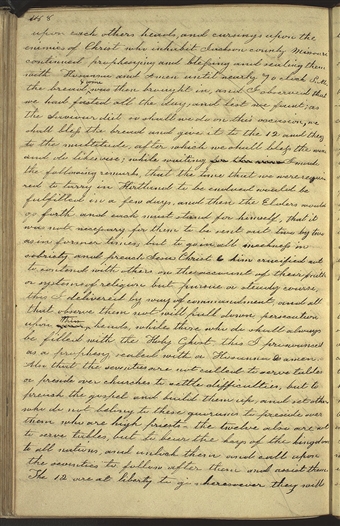 upon each others heads, and cursings upon the
enemies of Christ who inhabit Jackson county Missouri
continued prophesying and blessing and sealing them
with Hosanna and Amen until nearly 7 o clock P.M.
the bread & wine was then brought in, and I observed that
we had fasted all the day, and lest we faint; as
the Saviour did so shall we do on this occasion, we
shall bless the bread and give it to the 12 and they
to the multitude, after which we shall bless the wine
and do likewise; while waiting for the wine I made
the following remark, that the time that we were requir
ed to tarry in Kirtland to be endued would be
fulfilled in a few days, and then the Elders would
go forth and each must stand for himself, that it
was not necessary for them to be sent out two by two
as in former times; but to go in all meekness in
sobriety and preach Jesus Christ & him crucified not
to contend with others on the account of their faith
or systems of religion but pursue a steady course,
this I delivered by way of commandment, and all
that observe them not will pull down persecution
upon their heads, while those who do shall always
be filled with the Holy Ghost, this I pronounced
as a prophesy, sealed with a Hosanna & amen.
Also that the seventies are not called to serve tables
or preside over churches to settle difficulties, but to
preach the gospel and build them up, and set others
who do not belong to these quorums to preside over
them who are high priests - the twelve also are not
to serve tables, but to bear the keys of the kingdom
to all nations, and unlock them and call upon
the seventies to follow after them and assist them
The 12 are at liberty to go wheresoever they will